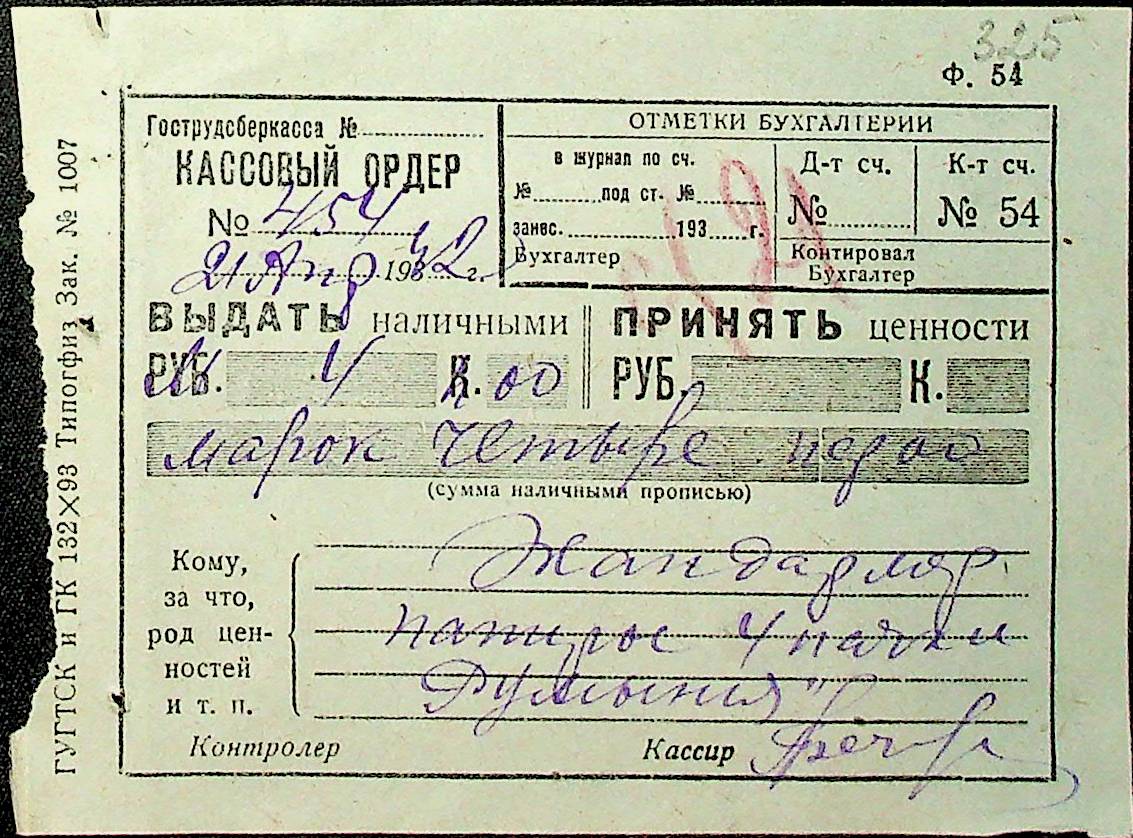 325
Ф. 54
Гострудсберкасса №
КАССОВЫЙ ОРДЕР
№ 454
21 Апр 1942 г.
ОТМЕТКИ БУХГАЛТЕРИИ
в журнал по сч.
№ под ст. №
занес. 193 г.
Бухгалтер
Д-т сч.
№
К-т сч.
№ 54
Контировал
Бухгалтер
ВЫДАТЬ наличными
РУБ. 4 К. 00
ПРИНЯТЬ ценности
РУБ. К.
марок Четыре пф 00
(сумма наличными прописью)
Кому,
за что,
род цен-
ностей
и т. п.
Жандарляр
папирос 4 пачки
Румыния"
Контролер
Кассир
ГУГТСК и ГК 132×93 Типогфиз Зак. № 1007